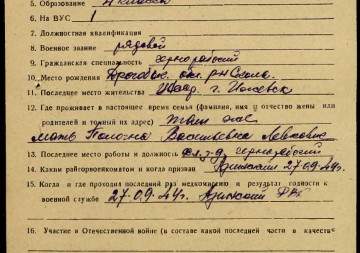 5. Образование 4 класса
6. На ВУС 1
7. Должностная квалификация
8. Военное звание рядовой
9. Гражданская специальность чернорабочий
10. Место рождения Дрогобыч. обл. р-н
11. Последнее место жительства г.
12. Где проживает в настоящее время семья (фамилия, имя и отчество жены или
родителей и точный их адрес) там же
мать Васильевна
13. Последнее место работы и должность чернорабочий
14. Каким райгорвоенкоматом и когда призван 27.09.44г.
15. Когда и где проходил последний раз медкомиссию и результат годности к
военной службе 27.09.44г. РВК
16. Участие в Отечественной войне (в составе какой последней части в качестве